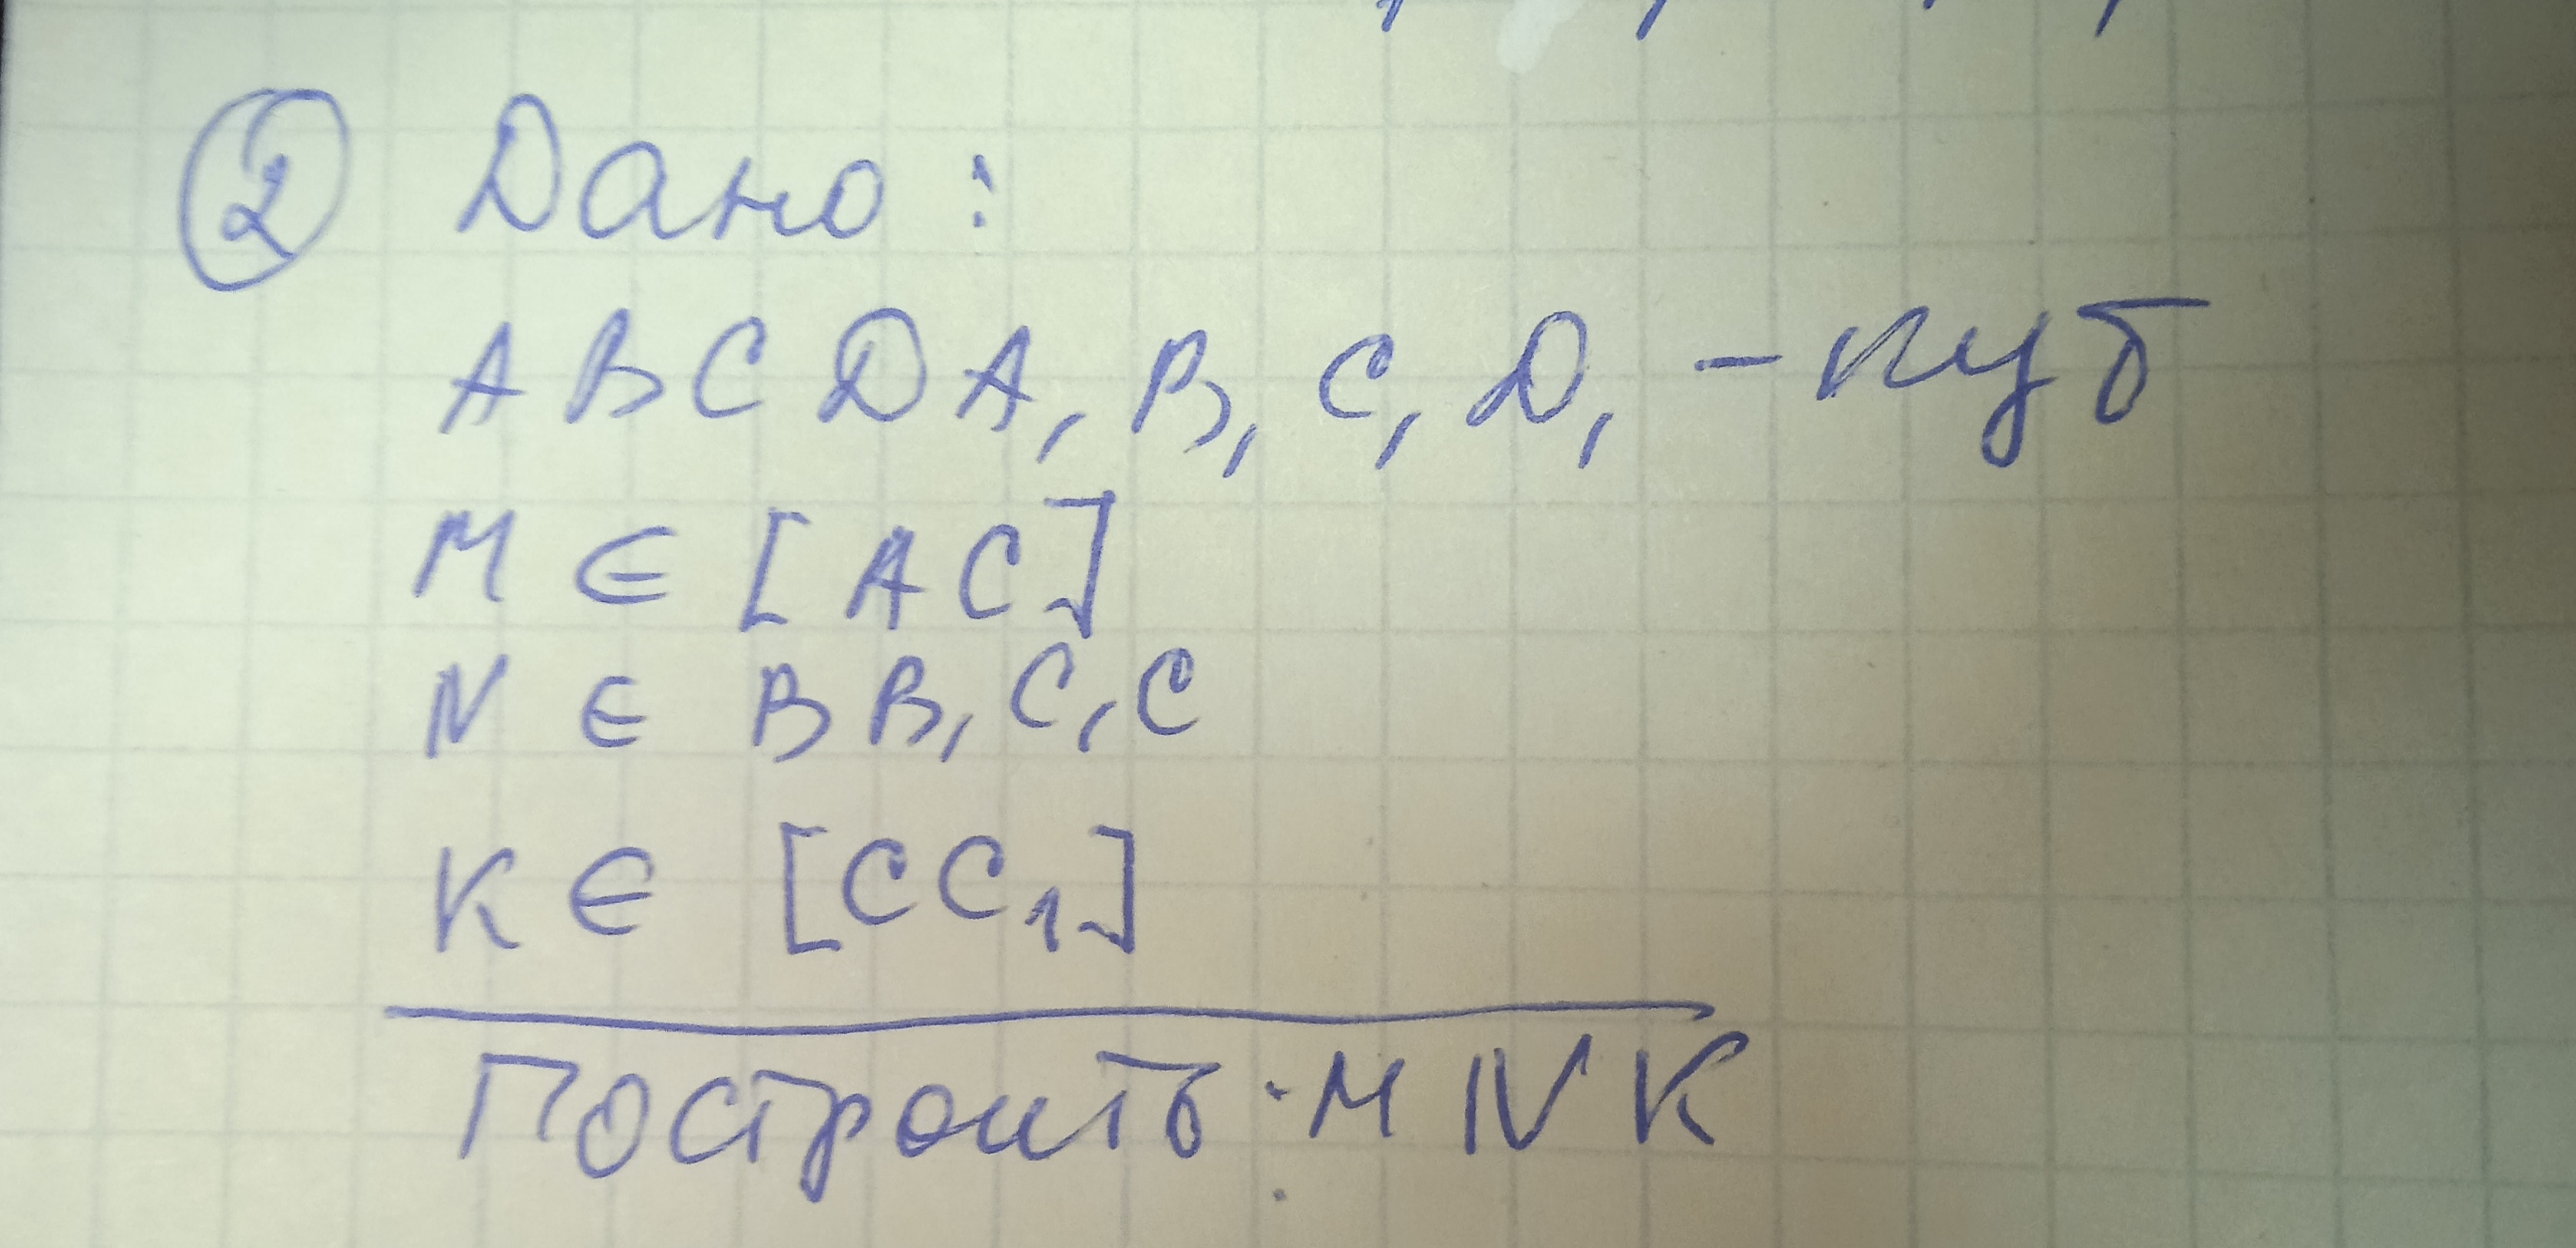 ② Дано:
ABCDA₁B₁C₁D₁ - куб
M ∈ [AC]
N ∈ BB₁C₁C
K ∈ [CC₁]
Построить: MNK